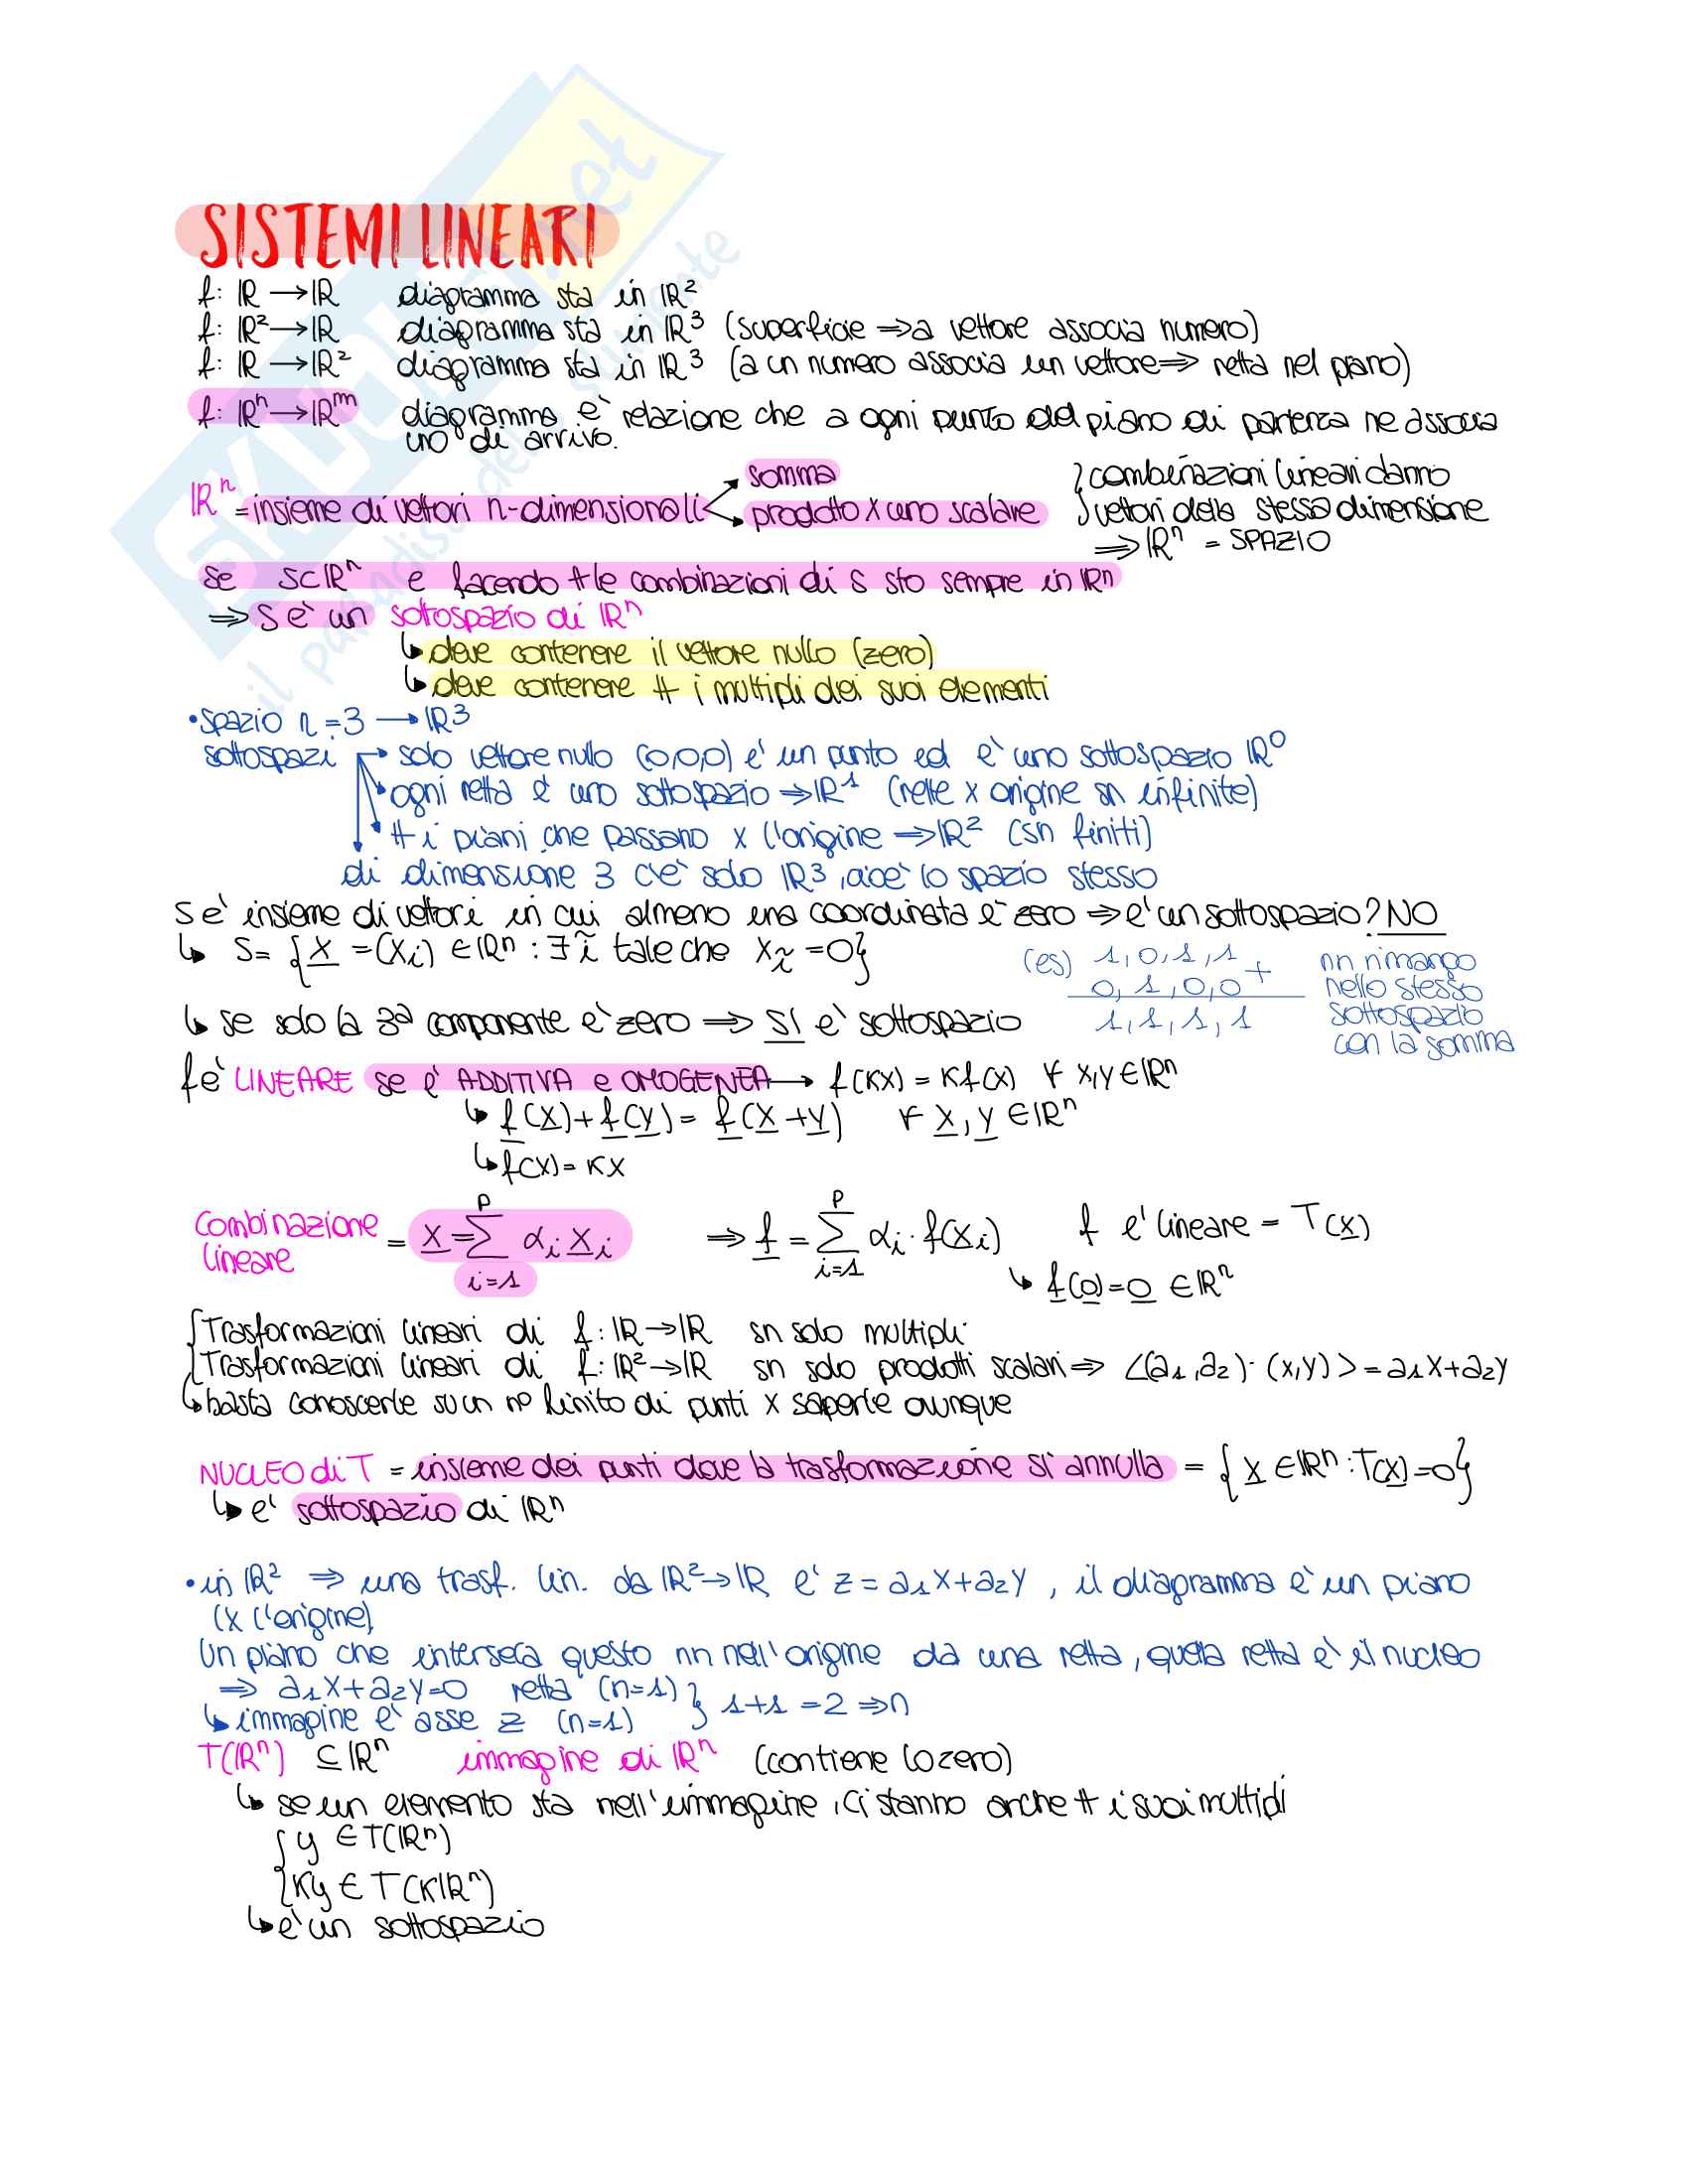 SISTEMI LINEARI
f: ℝ → ℝ diagramma sta in ℝ²
f: ℝ² → ℝ diagramma sta in ℝ³ (superficie ⇒ a vettore associa numero)
f: ℝ → ℝ² diagramma sta in ℝ³ (a un numero associa un vettore ⇒ retta nel piano)
f: ℝⁿ → ℝᵐ diagramma è relazione che a ogni punto del piano di partenza ne associa
uno di arrivo.
ℝⁿ = insieme di vettori n-dimensionali
somma
prodotto x uno scalare
} combinazioni lineari danno
vettori della stessa dimensione
⇒ ℝⁿ = SPAZIO
se S⊂ℝⁿ e facendo tt le combinazioni di S sto sempre in ℝⁿ
⇒ S è un sottospazio di ℝⁿ
↳ deve contenere il vettore nullo (zero)
↳ deve contenere tt i multipli dei suoi elementi
• Spazio n = 3 → ℝ³
sottospazi → solo vettore nullo (0,0,0) è un punto ed è uno sottospazio ℝ⁰
ogni retta è uno sottospazio ⇒ ℝ¹ (rette x origine sn infinite)
tt i piani che passano x l'origine ⇒ ℝ² (sn finiti)
di dimensione 3 c'è solo ℝ³, cioè lo spazio stesso
S è insieme di vettori in cui almeno una coordinata è zero ⇒ è un sottospazio? NO
↳ S = {x = (xᵢ) ∈ ℝⁿ : ∃ ĩ tale che x_ĩ = 0}
(es) 1,0,1,1
0,1,0,0 +
1,1,1,1
nn rimango
nello stesso
sottospazio
con la somma
↳ se solo la 3ª componente è zero ⇒ SI è sottospazio
f è LINEARE se è ADDITIVA e OMOGENEA → f(kx) = kf(x) ∀ x,y ∈ ℝⁿ
↳ f(x)+f(y) = f(x+y) ∀ x, y ∈ ℝⁿ
↳ f(x) = kx
Combinazione lineare = x = Σ_{i=1}^{p} αᵢ xᵢ ⇒ f = Σ_{i=1}^{p} αᵢ · f(xᵢ) f è lineare = T(x)
↳ f(0)=0 ∈ ℝⁿ
{ Trasformazioni lineari di f: ℝ → ℝ sn solo multipli
{ Trasformazioni lineari di f: ℝ² → ℝ sn solo prodotti scalari ⇒ <(a₁,a₂)·(x,y)> = a₁x+a₂y
↳ basta conoscerle su un n° finito di punti x saperle ovunque
NUCLEO di T = insieme dei punti dove la trasformazione si annulla = {x ∈ ℝⁿ : T(x)=0}
↳ è sottospazio di ℝⁿ
• in ℝ² ⇒ una trasf. lin. da ℝ² → ℝ è z = a₁x+a₂y, il diagramma è un piano
(x l'origine)
Un piano che interseca questo nn nell'origine da una retta, quella retta è il nucleo
⇒ a₁x+a₂y=0 retta (n=1)
↳ immagine è asse z (n=1)
} 1+1 = 2 ⇒ n
T(ℝⁿ) ⊆ ℝⁿ immagine di ℝⁿ (contiene lo zero)
↳ se un elemento sta nell'immagine, ci stanno anche tt i suoi multipli
{ y ∈ T(ℝⁿ)
{ ky ∈ T(kℝⁿ)
↳ è un sottospazio
SKUOLA.net
il paradiso dello studente